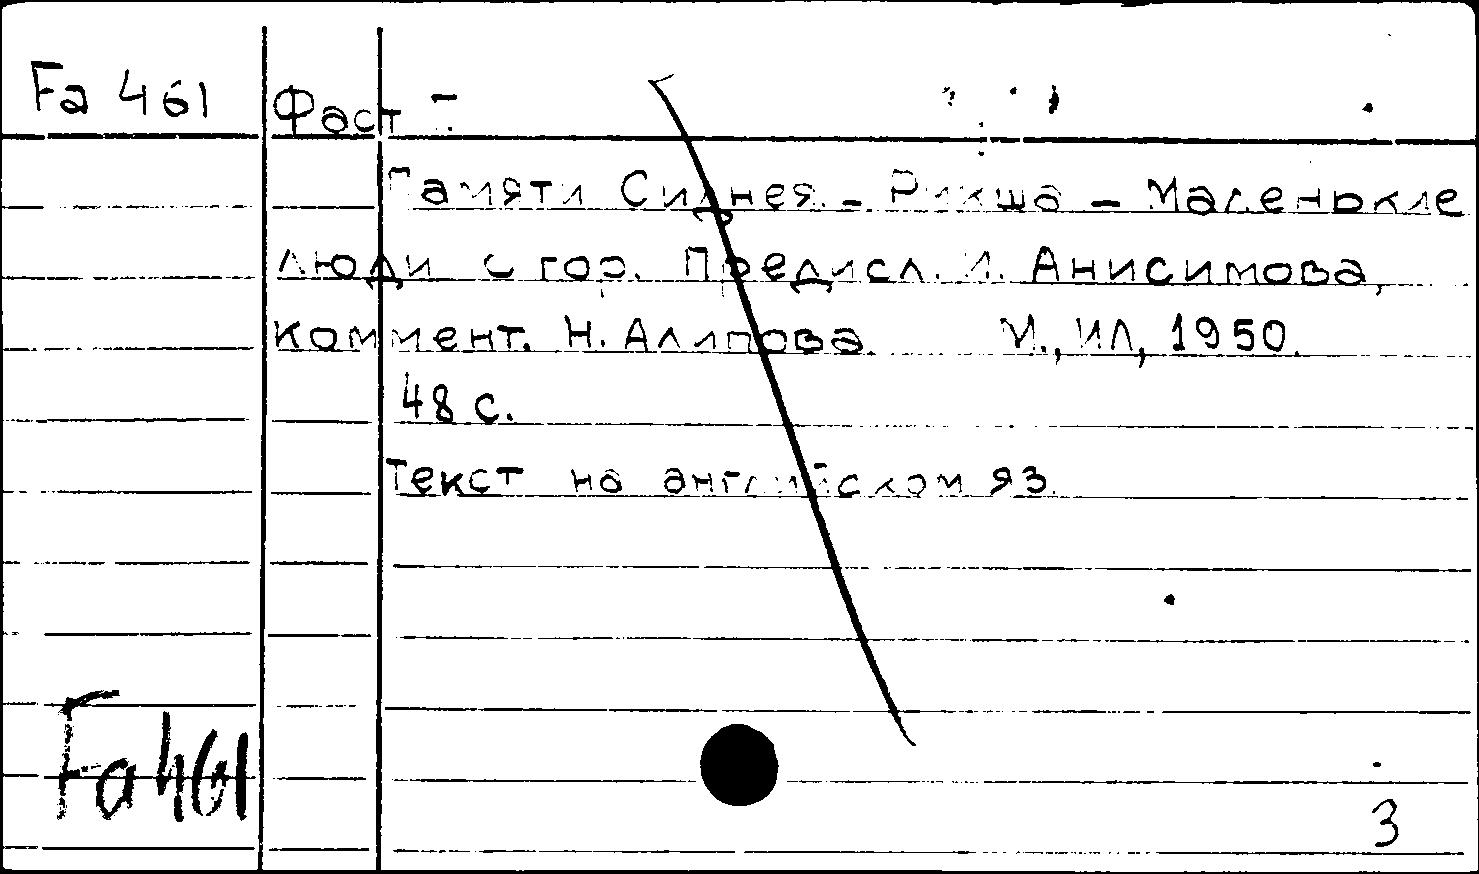 Fa 461 Фаст Г.
Памяти Сиднея. - Рикша - Маленькие
люди с гор. Предисл. И. Анисимова,
коммент. Н. Алипова. М., ИЛ, 1950.
48 с.
Текст на английском яз.
Fa 461
3